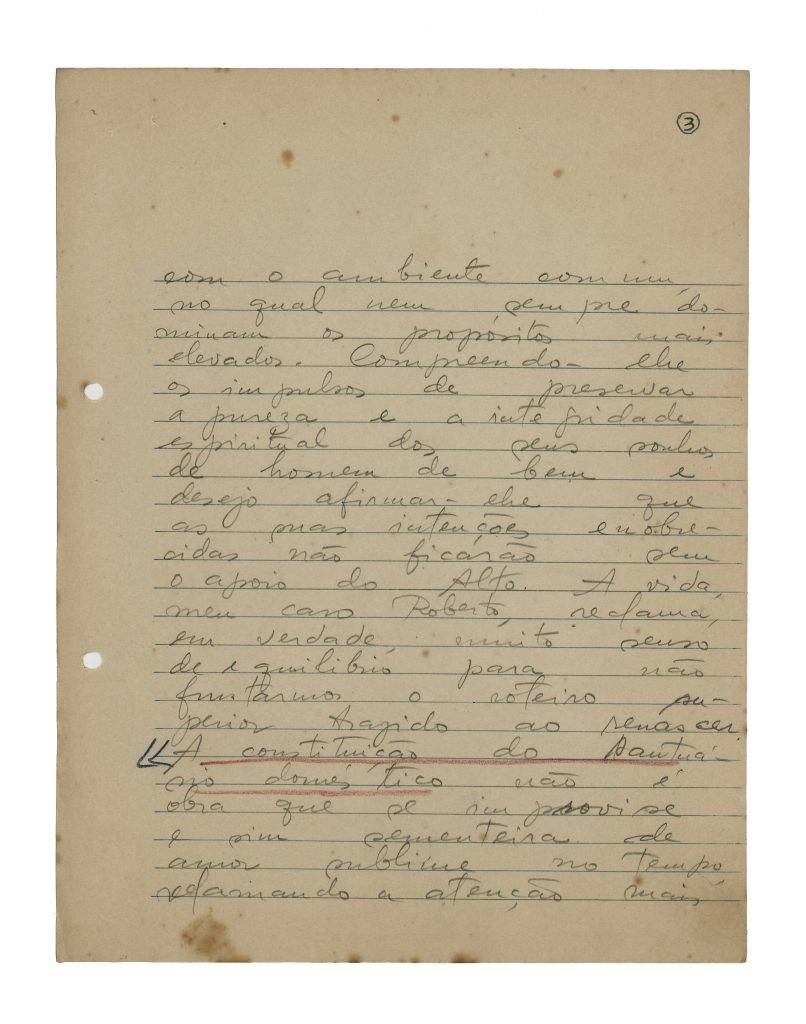 3
com o ambiente commum,
no qual nem sempre do-
minam os propósitos mais
elevados. Compreendo-lhe
os impulsos de preservar
a pureza e a integridade
espiritual dos seus sonhos
de homem de bem e
desejo afirmar-lhe que
as suas intenções enobre-
cidas não ficarão sem
o apoio do Alto. A vida,
meu caro Roberto, reclama,
em verdade, muito senso
de equilibrio para não
frustarmos o roteiro su-
perior trazido ao renascer.
A constituição do santuá-
rio doméstico não é
obra que se improvise
e sim sementeira de
amor sublime no tempo,
reclamando a atenção mais